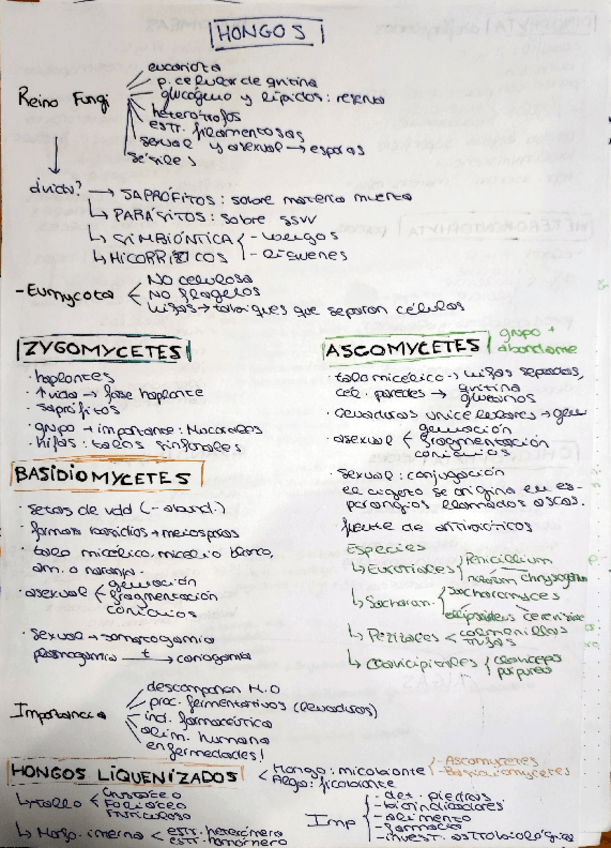 HONGOS
Reino Fungi
eucariota
p. celular de quitina
glucógeno y lípidos: reserva
heterótrofos
estr. filamentosas
sexual y asexual → esporas
sésiles
→ SAPRÓFITOS: sobre materia muerta
↳ PARÁSITOS: sobre SSVV
↳ SIMBIÓNTICA
↳ MICORRÍCICOS
- líquenes
- Eumycota
NO celulosa
NO flagelos
hifas → tabiques que separan células
ZYGOMYCETES
· haplontes
· ↑ vida → fase haplonte
· saprófitos
· grupo + importante: Mucorales
· hifas: talos sifonales
ASCOMYCETES
grupo +
abundante
· talo micélico → hifas separadas,
cel. paredes → quitina
glucanos
· levaduras unicelulares →
· asexual
gemación
fragmentación
conidios
· sexual: conjugación
el cigoto se origina en es-
porangios llamados ascas.
· fuente de antibióticos
Especies
↳ Eurotiales
Penicillium
notatum chrysogenum
↳ Sacharom.
Sacharomyces
ellipsoideus cerevisiae
↳ Pezizales
colmenillas
trufas
↳ Clavicipitales
claviceps
purpurea
BASIDIOMYCETES
· setas de vdd (- abund.)
· forman basidios + meiosporas
· talo micélico, micelio blanco,
am. o naranja.
· asexual
gemación
fragmentación
conidios
· sexual → somatogamia
plasmogamia t → cariogamia
Importancia
descomponen M.O
proc. fermentativos (levaduras)
ind. farmacéutica
alim. humana
enfermedades!
HONGOS LIQUENIZADOS
Hongo: micobionte
- Ascomycetes
- Basidiomycetes
Alga: ficobionte
↳ tallo
Crustáceo
Foliáceo
Fruticuloso
↳ Morfo. interna
estr. heterómero
estr. homómero
Imp
- det. piedras
- bioindicadores
- alimento
- farmacia
- invest. astrobiológicas